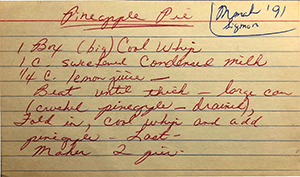 Pineapple Pie
March '91
Sigmon
1 Box (big) Cool Whip
1 C. sweetened Condensed milk
1/4 C. lemon juice —
Beat until thick — large can
(crushed pineapple — drained),
Fold in, cool whip and add
pineapple — Last —
Makes 2 pies.